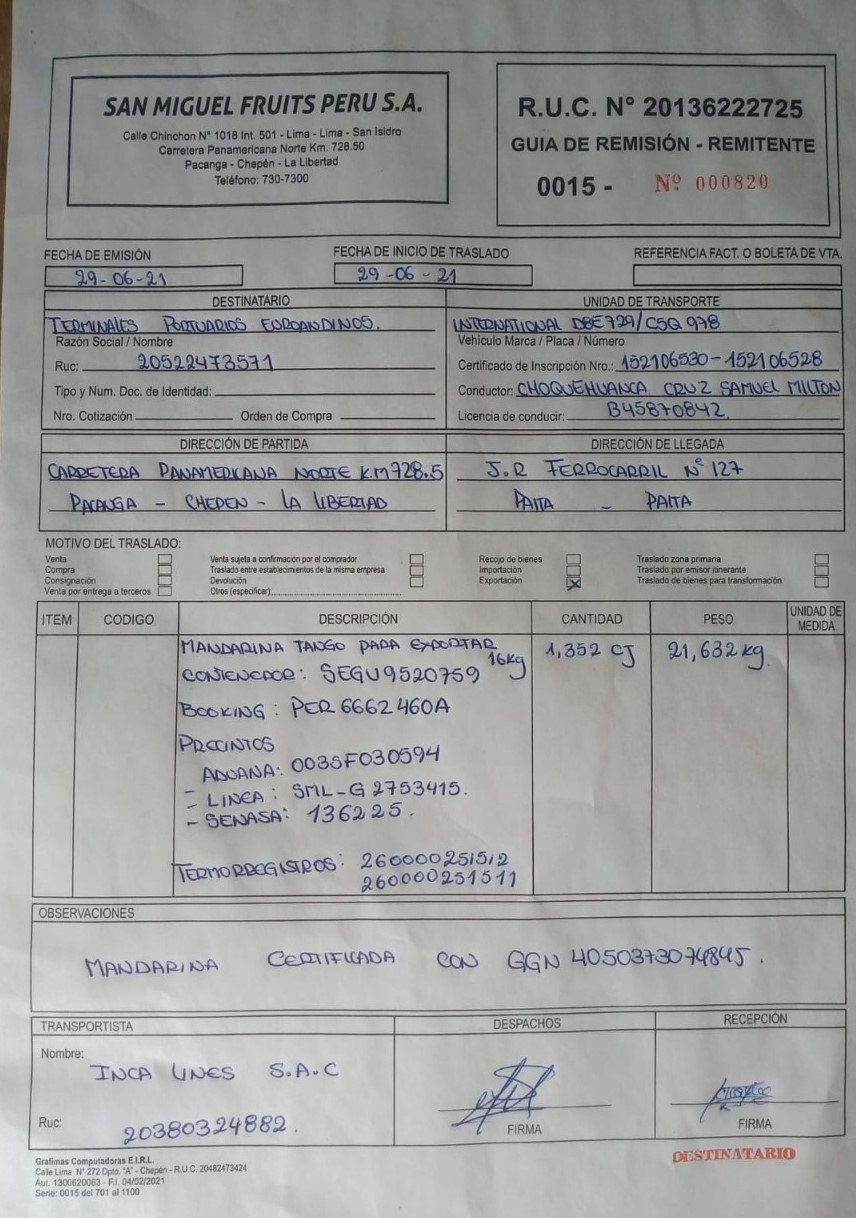 SAN MIGUEL FRUITS PERU S.A.
Calle Chinchon N° 1018 Int. 501 - Lima - Lima - San Isidro
Carretera Panamericana Norte Km. 728.50
Pacanga - Chepén - La Libertad
Teléfono: 730-7300
R.U.C. N° 20136222725
GUIA DE REMISIÓN - REMITENTE
0015 - Nº 000820
FECHA DE EMISIÓN
29-06-21
FECHA DE INICIO DE TRASLADO
29-06-21
REFERENCIA FACT. O BOLETA DE VTA.
DESTINATARIO
TERMINALES PORTUARIOS EUROANDINOS.
Razón Social / Nombre
Ruc: 20522473571
Tipo y Num. Doc. de Identidad:
Nro. Cotización Orden de Compra
UNIDAD DE TRANSPORTE
INTERNATIONAL D8E729/C5Q 978
Vehículo Marca / Placa / Número
Certificado de Inscripción Nro.: 152106530-152106528
Conductor: CHOQUEHUANCA CRUZ SAMUEL MILTON
Licencia de conducir: B45870842.
DIRECCIÓN DE PARTIDA
CARRETERA PANAMERICANA NORTE K.M 728.5
PACANGA - CHEPEN - LA LIBERTAD
DIRECCIÓN DE LLEGADA
J.R FERROCARRIL N° 127
PAITA - PAITA
MOTIVO DEL TRASLADO:
Venta
Compra
Consignación
Venta por entrega a terceros
Venta sujeta a confirmación por el comprador
Traslado entre establecimientos de la misma empresa
Devolución
Otros (especificar)
Recojo de bienes
Importación
Exportación X
Traslado zona primaria
Traslado por emisor itinerante
Traslado de bienes para transformación
ITEM CODIGO DESCRIPCIÓN CANTIDAD PESO UNIDAD DE MEDIDA
MANDARINA TANGO PARA EXPORTAR 16kg 1,352 CJ 21,632 kg.
CONTENEDOR: SEGU9520759
BOOKING: PER 6662460A
PRECINTOS
ADUANA: 0035F030594
- LINEA: SML-G 2753415.
- SENASA: 136225.
TERMORREGISTROS: 260000251512
260000251511
OBSERVACIONES
MANDARINA CERTIFICADA CON GGN 4050373074845.
TRANSPORTISTA
Nombre:
INCA LINES S.A.C
Ruc: 20380324882.
DESPACHOS
FIRMA
RECEPCIÓN
FIRMA
Grafimas Computadoras E.I.R.L.
Calle Lima N° 272 Dpto. "A" - Chepén - R.U.C. 20482473424
Aut. 1300620063 - F.I. 04/02/2021
Serie: 0015 del 701 al 1100
DESTINATARIO